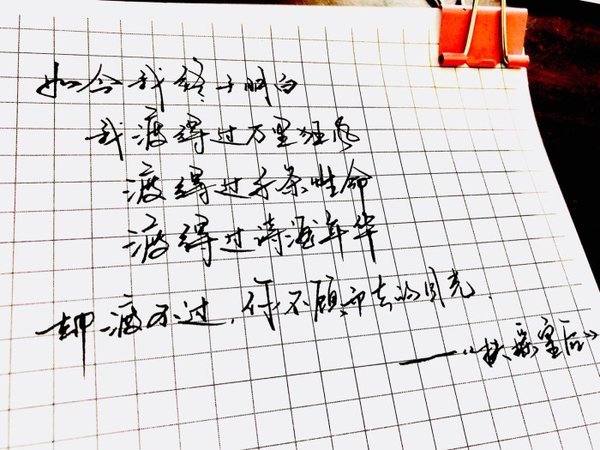 如今我终于明白
我渡得过万里狂风
渡得过千条性命
渡得过诗酒年华
却渡不过,你不顾而去的目光.
——《扶摇皇后》